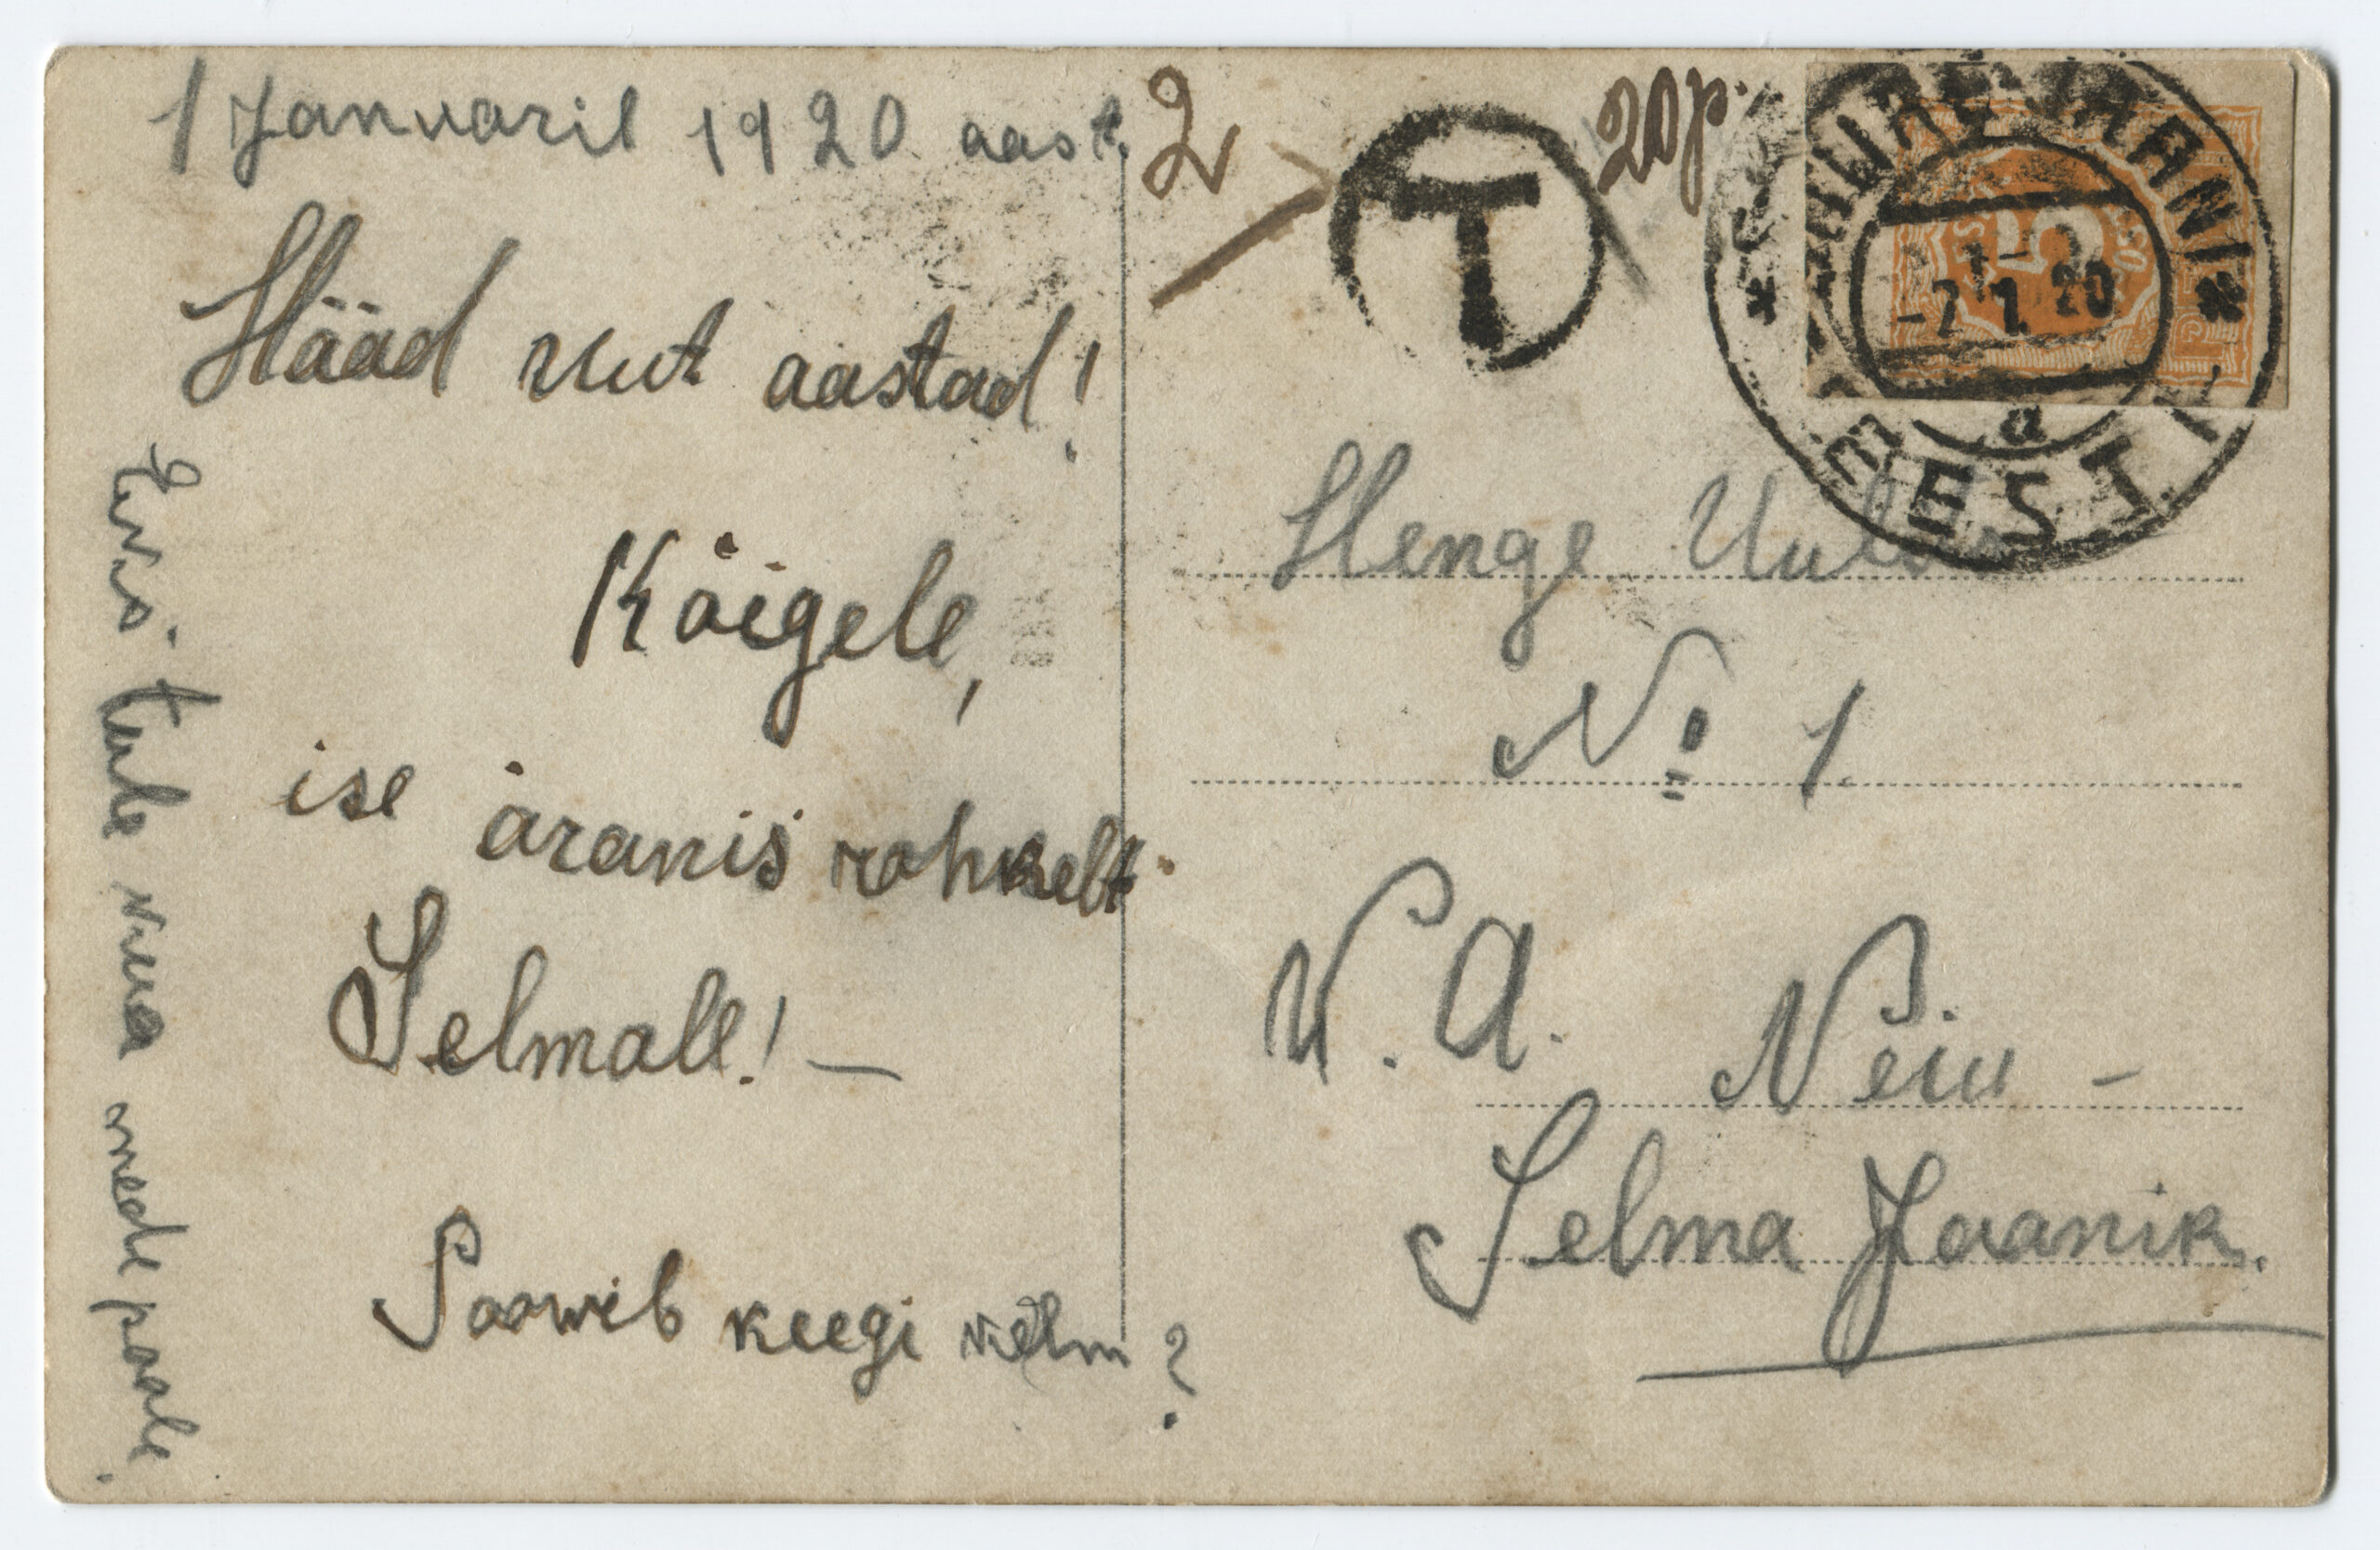 1 Januaril 1920 aast.
Hääd uut aastad!
Kõigele,
ise äranis rohkelt
Selmale! —
Soowib keegi
?
tule meede poole.
2
T
20p.
SUURE-JAANI
5
-2.1.20
a
EESTI
Henge
No 1.
W. A. Neiu -
Selma Jaanik.